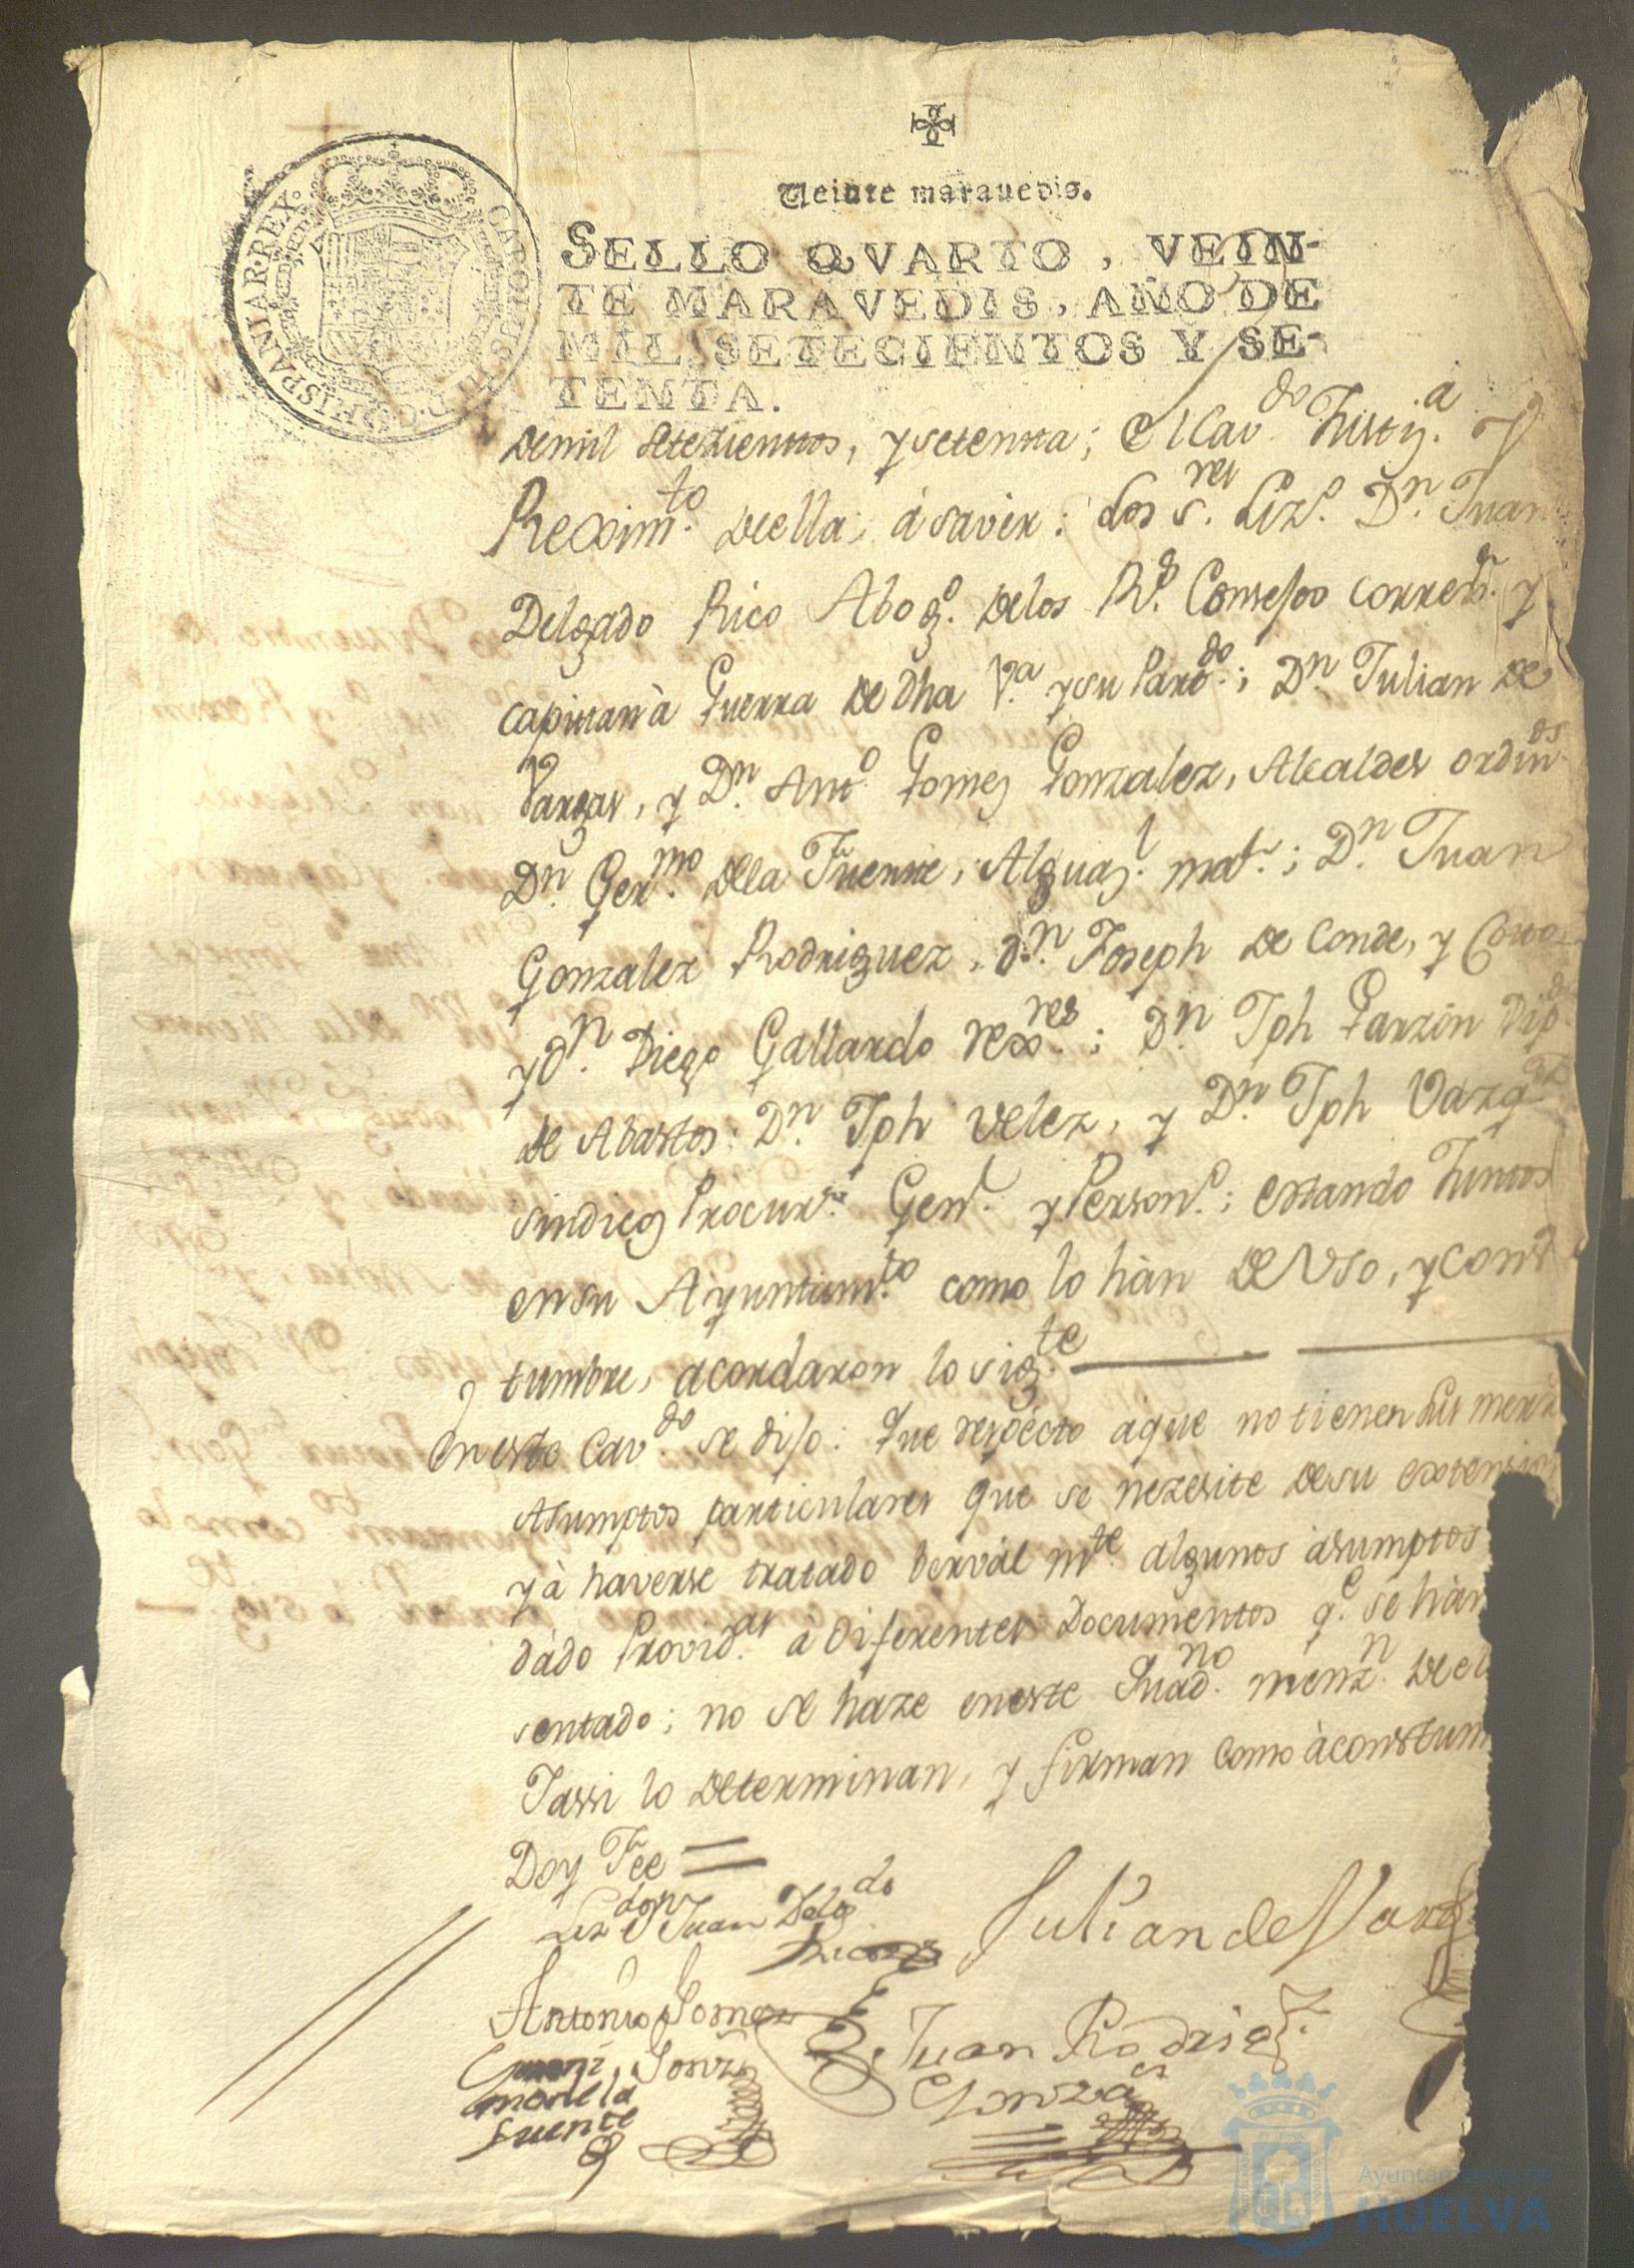 Veinte marauedis.
SELLO QVARTO, VEIN-
TE MARAVEDIS, AÑO DE
MIL SETECIENTOS Y SE-
TENTA.
CAROLUS III D.G. HISPANIAR. REX.
demil setezienttos, ysetentta; el Cav.do Justiz.a y
Reximto. deella, àsaver: los s.res Lizdo. Dn. Juan
Delgado Rico Abogo. delos Rs. Consejos correxr. y
capittan à Guerra de dha Va. ysu Partdo.; Dn. Julian de
Vargas, y Dn. Anto. Gomez Gonzalez, Alcaldes ordins.
Dn. Germo. dela Fuente, Alguazl. mar.; Dn. Juan
Gonzalez Rodriguez, dn. Joseph de Conde, y
ydn. Diego Gallardo rexres.; Dn. Jph Garzin Dipdo.
de Abastos; Dn. Jph Velez, y Dn. Jph Vazqez
sindicos Procurr. Genl. yPersono.; estando Juntos
ensu Ayuntamto. como lo hàn de Uso, ycons
tumbre, acordaron lo sigte.
En este Cavdo. se dijo: Que respecto àque no tienen
Asumptos particulares que se nezesite desu extension
yà haverse tratado vervàl mte. algunos àsumptos
dàdo Providas. à diferentes Documentos qe. se hàn
sentado; no se haze eneste Quadno. menzn. de
Yassi lo determinan, y firman como àcostum
Doy Fee =
Lizdo dn Juan Delgdo
Rico
Julian de Varg
Antonio Gomez
Gonzz
Juan Rodrigz.
Gonzales
Germo de la
fuente
Ayuntamiento de
HUELVA